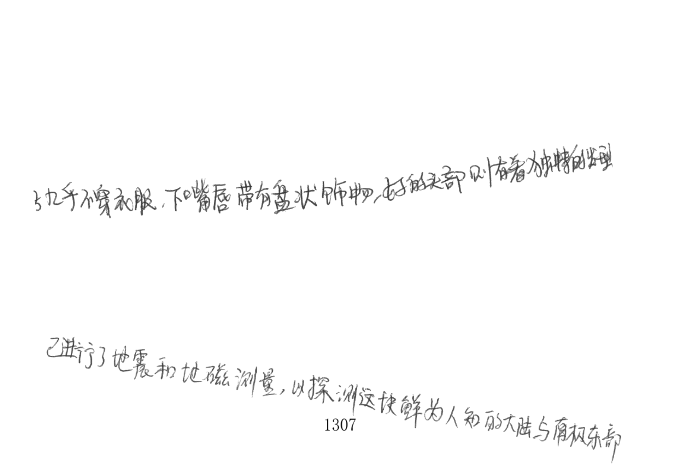 几乎不穿衣服，下嘴唇带有盘状饰物，的头部则有着独特的
已进行了地震和地磁测量，以探测这块鲜为人知的大陆与南极东部
1307